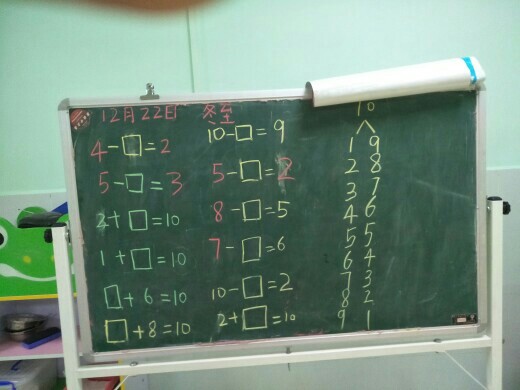 12月22日 冬至
4-□=2
5-□=3
2+□=10
1+□=10
□+6=10
□+8=10
10-□=9
5-□=2
8-□=5
7-□=6
10-□=2
2+□=10
10
1 9
2 8
3 7
4 6
5 5
6 4
7 3
8 2
9 1